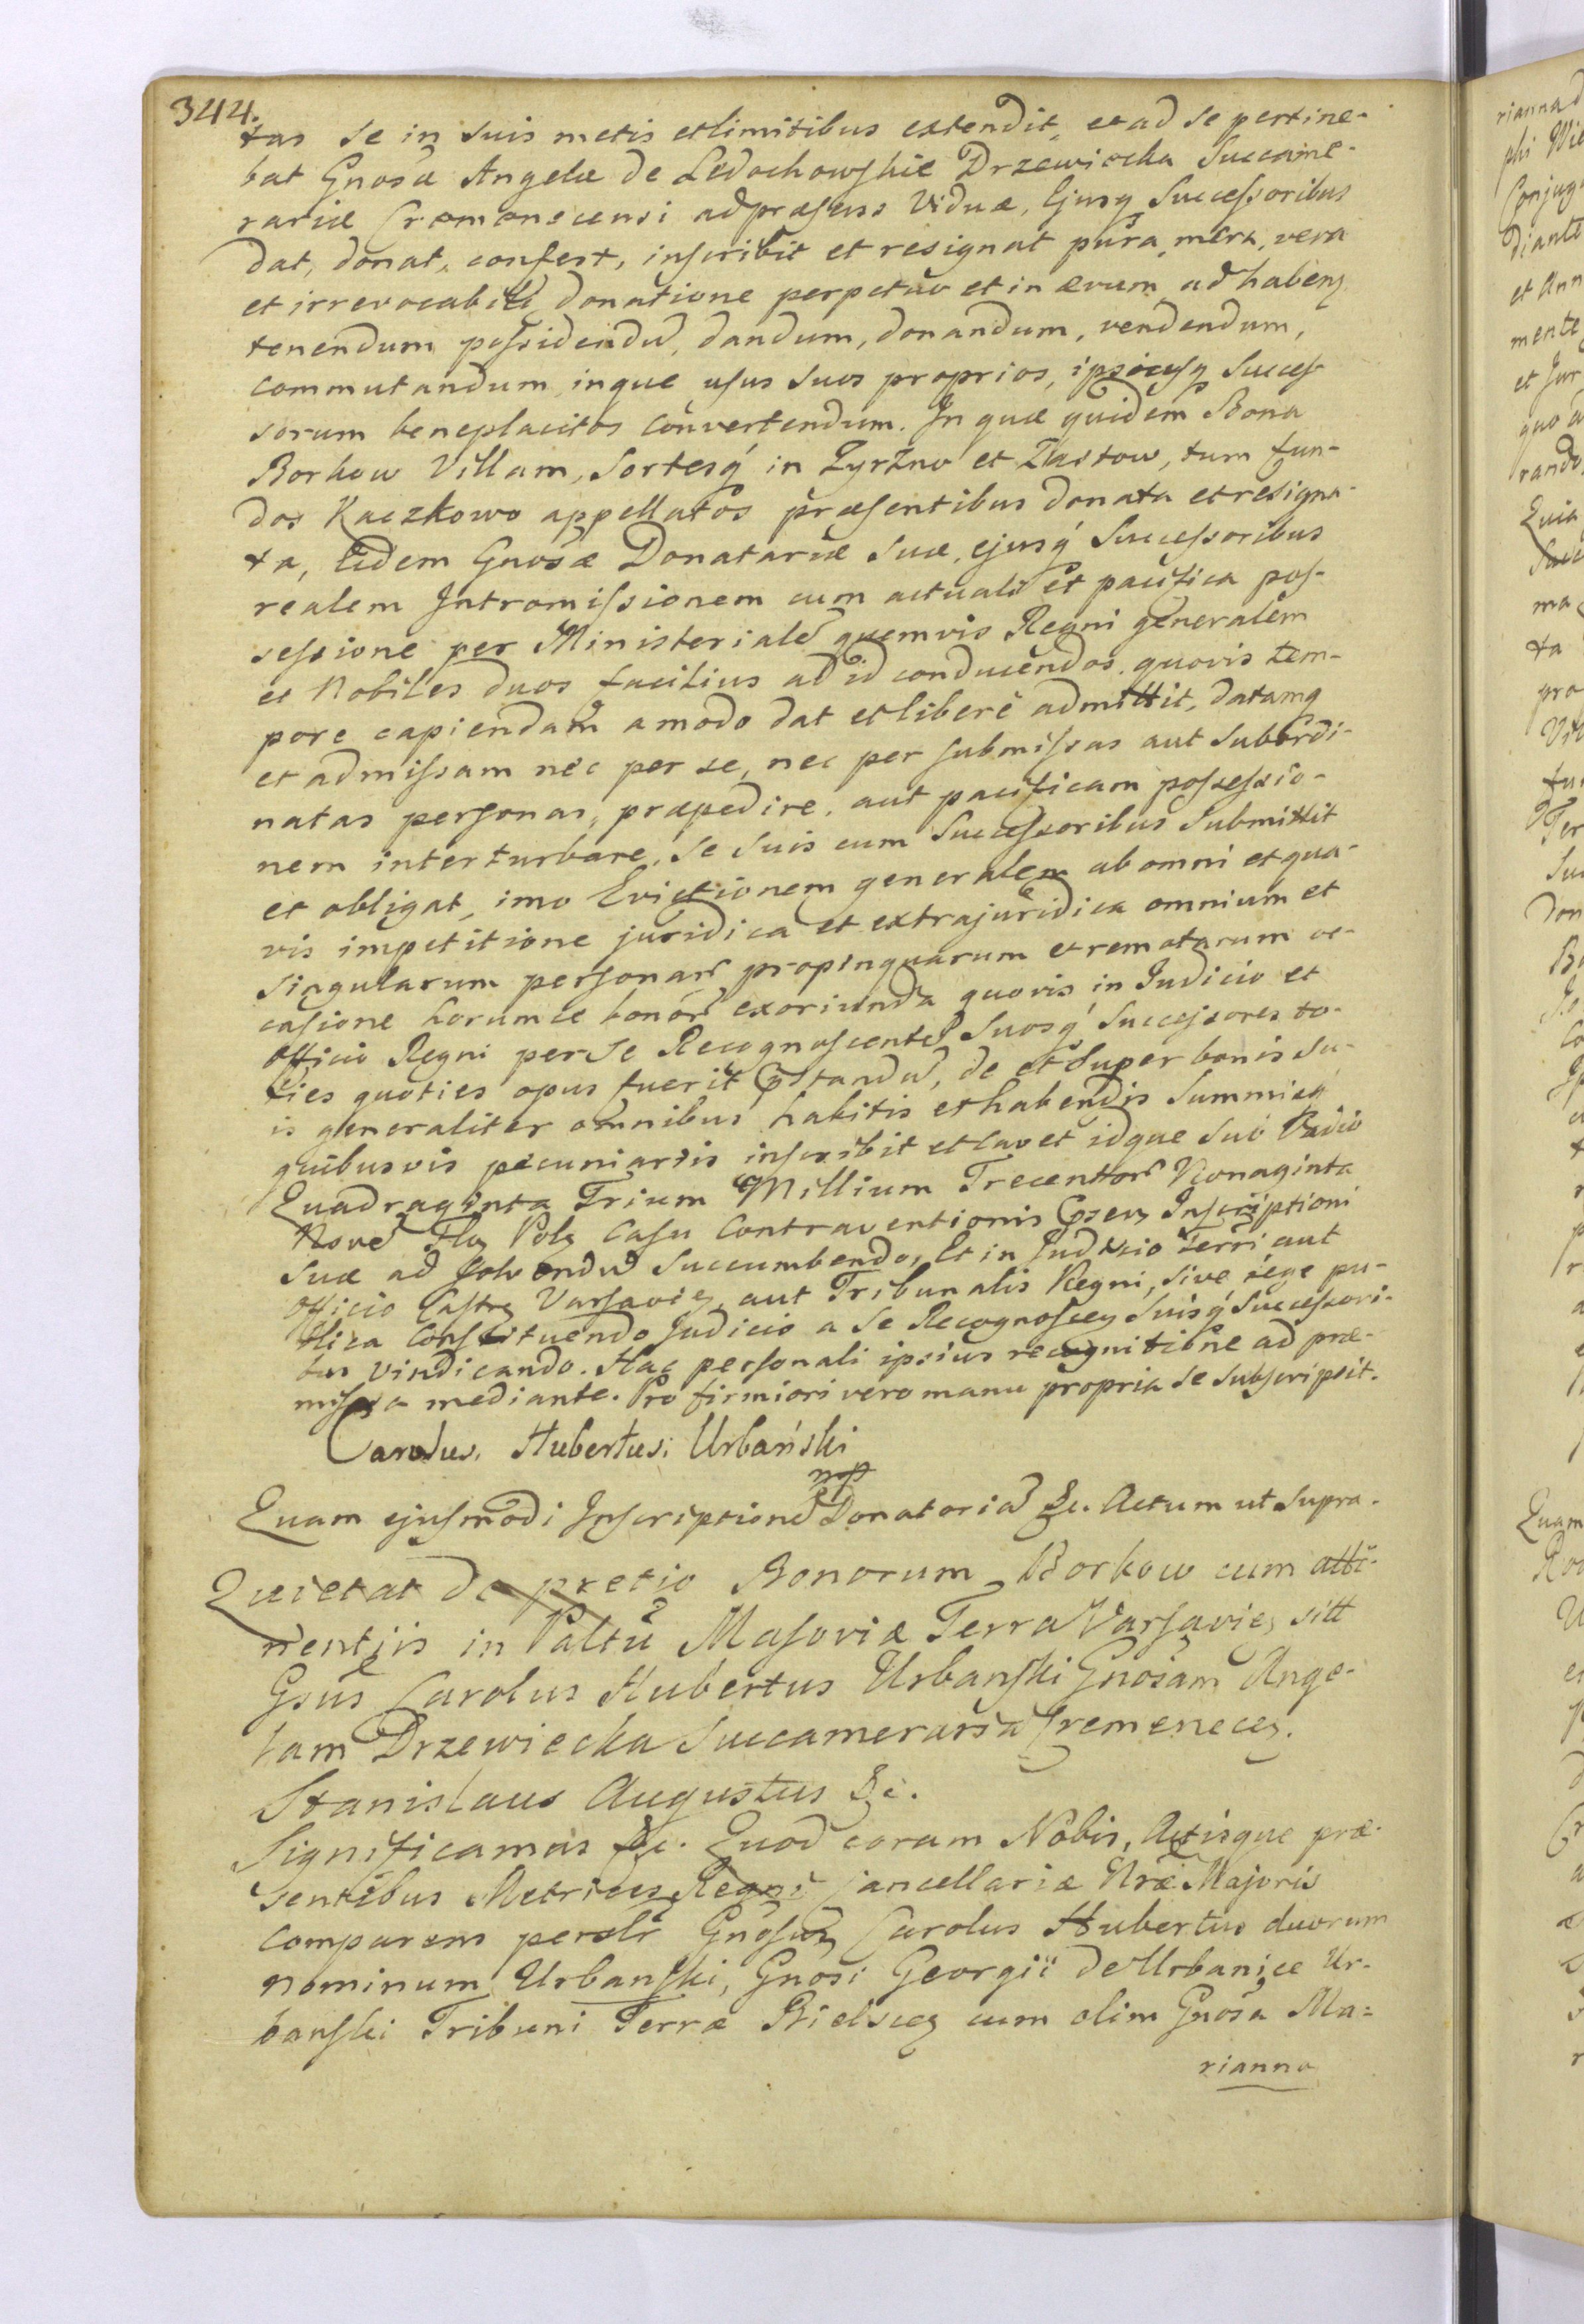 344.
tas se in suis metis et limitibus extendit, et ad se pertine-
bat Gnosæ Angelæ de Ledochowskie Drzewiecka Succame-
rariæ Cremenecensi ad præsens Viduæ, Ejusq Successoribus
dat, donat, confert, inscribit et resignat pura, mera, vera
et irrevocabili donatione perpetuo et in ævum, ad habenq
tenendum possidendū, dandum, donandum, vendendum,
commutandum, inque usus suos proprios, ipsiusq Succes-
sorum beneplacitos convertendum. In quæ quidem Bona
Borkow Villam, Sortesq́ in Zyrzno et Zastow, tum fun-
dos Kaczkowo appellatos præsentibus donata et resigna-
ta, Eidem Gnosæ Donatariæ suæ, ejusq́ Successoribus
realem Intromissionem cum actuali et pacifica pos-
sessione per Ministerialē quemvis Regni generalem
et Nobiles duos facilius ad id conducendos quovis tem-
pore capiendam a modo dat et liberè admittit, datamq
et admissam nec per se, nec per submissas aut subordi-
natas personas, præpedire, aut pacificam possessio-
nem interturbare, se suis cum Successoribus submittit
et obligat, imo Evictionem generalem ab omni et qua-
vis impetitione juridica et extrajuridica omnium et
singularum personarū propinquarum et remotarum oc-
casione horumce bonorū exoriunda quovis in Judicio et
Officio Regni per se Recognoscentē Suosq́ Successores to-
ties quoties opus fuerit præstandū, de et super bonis su-
is generaliter omnibus habitis et habendis Summisq́
quibusvis pecuniariis inscribit et cavet idque sub Vadio
Quadraginta Trium Millium Trecentorū Nonaginta
Novē Flq Polq Casu Contraventionis præsenq Inscriptioni
suæ ad solvendū succumbendo, Et in Judicio Terri aut
Officio Castrq Varsavieq, aut Tribunalis Regni, sive lege pu-
blica constituendo Judicio a se Recognoscenq Suisq́ Successori-
bus vindicando. Hac personali ipsius recognitione ad præ-
missa mediante. Pro firmiori vero manu propria se subscripsit.
Carolus. Hubertus. Urbański
mp
Quam ejusmodi Inscriptionē Donatoriā &c. Actum ut supra.
Quietat de pretio Bonorum Borkow cum atti-
nentjis in Paltū Masoviæ Terra Varsavieq sitt
Gsus Carolus Hubertus Urbanski Gnosam Ange-
lam Drzewiecka Succamerariā Cremenecenq.
Stanislaus Augustus &c.
Significamus &c. Quod coram Nobis, Actisque præ-
sentibus Metrices Regni Cancellariæ Nræ Majoris
comparens perslr Gnosus Carolus Hubertus duorum
nominum Urbanski, Gnosi Georgii de Urbanice Ur-
banski Tribuni Terræ Bielsceq cum olim Gnosa Ma=
rianna